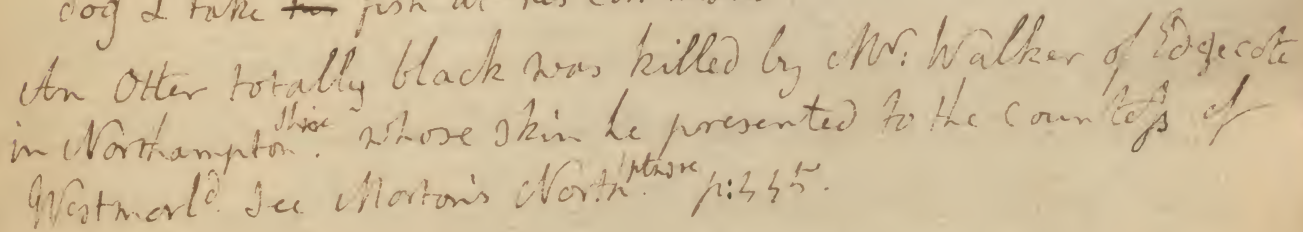 dog & take fish at his com
An Otter totally black was killed by Mr. Walker of Edgecote
in Northamptonshire. whose skin he presented to the Countess of
Westmorld. See Morton's North.ptnsre p:445.